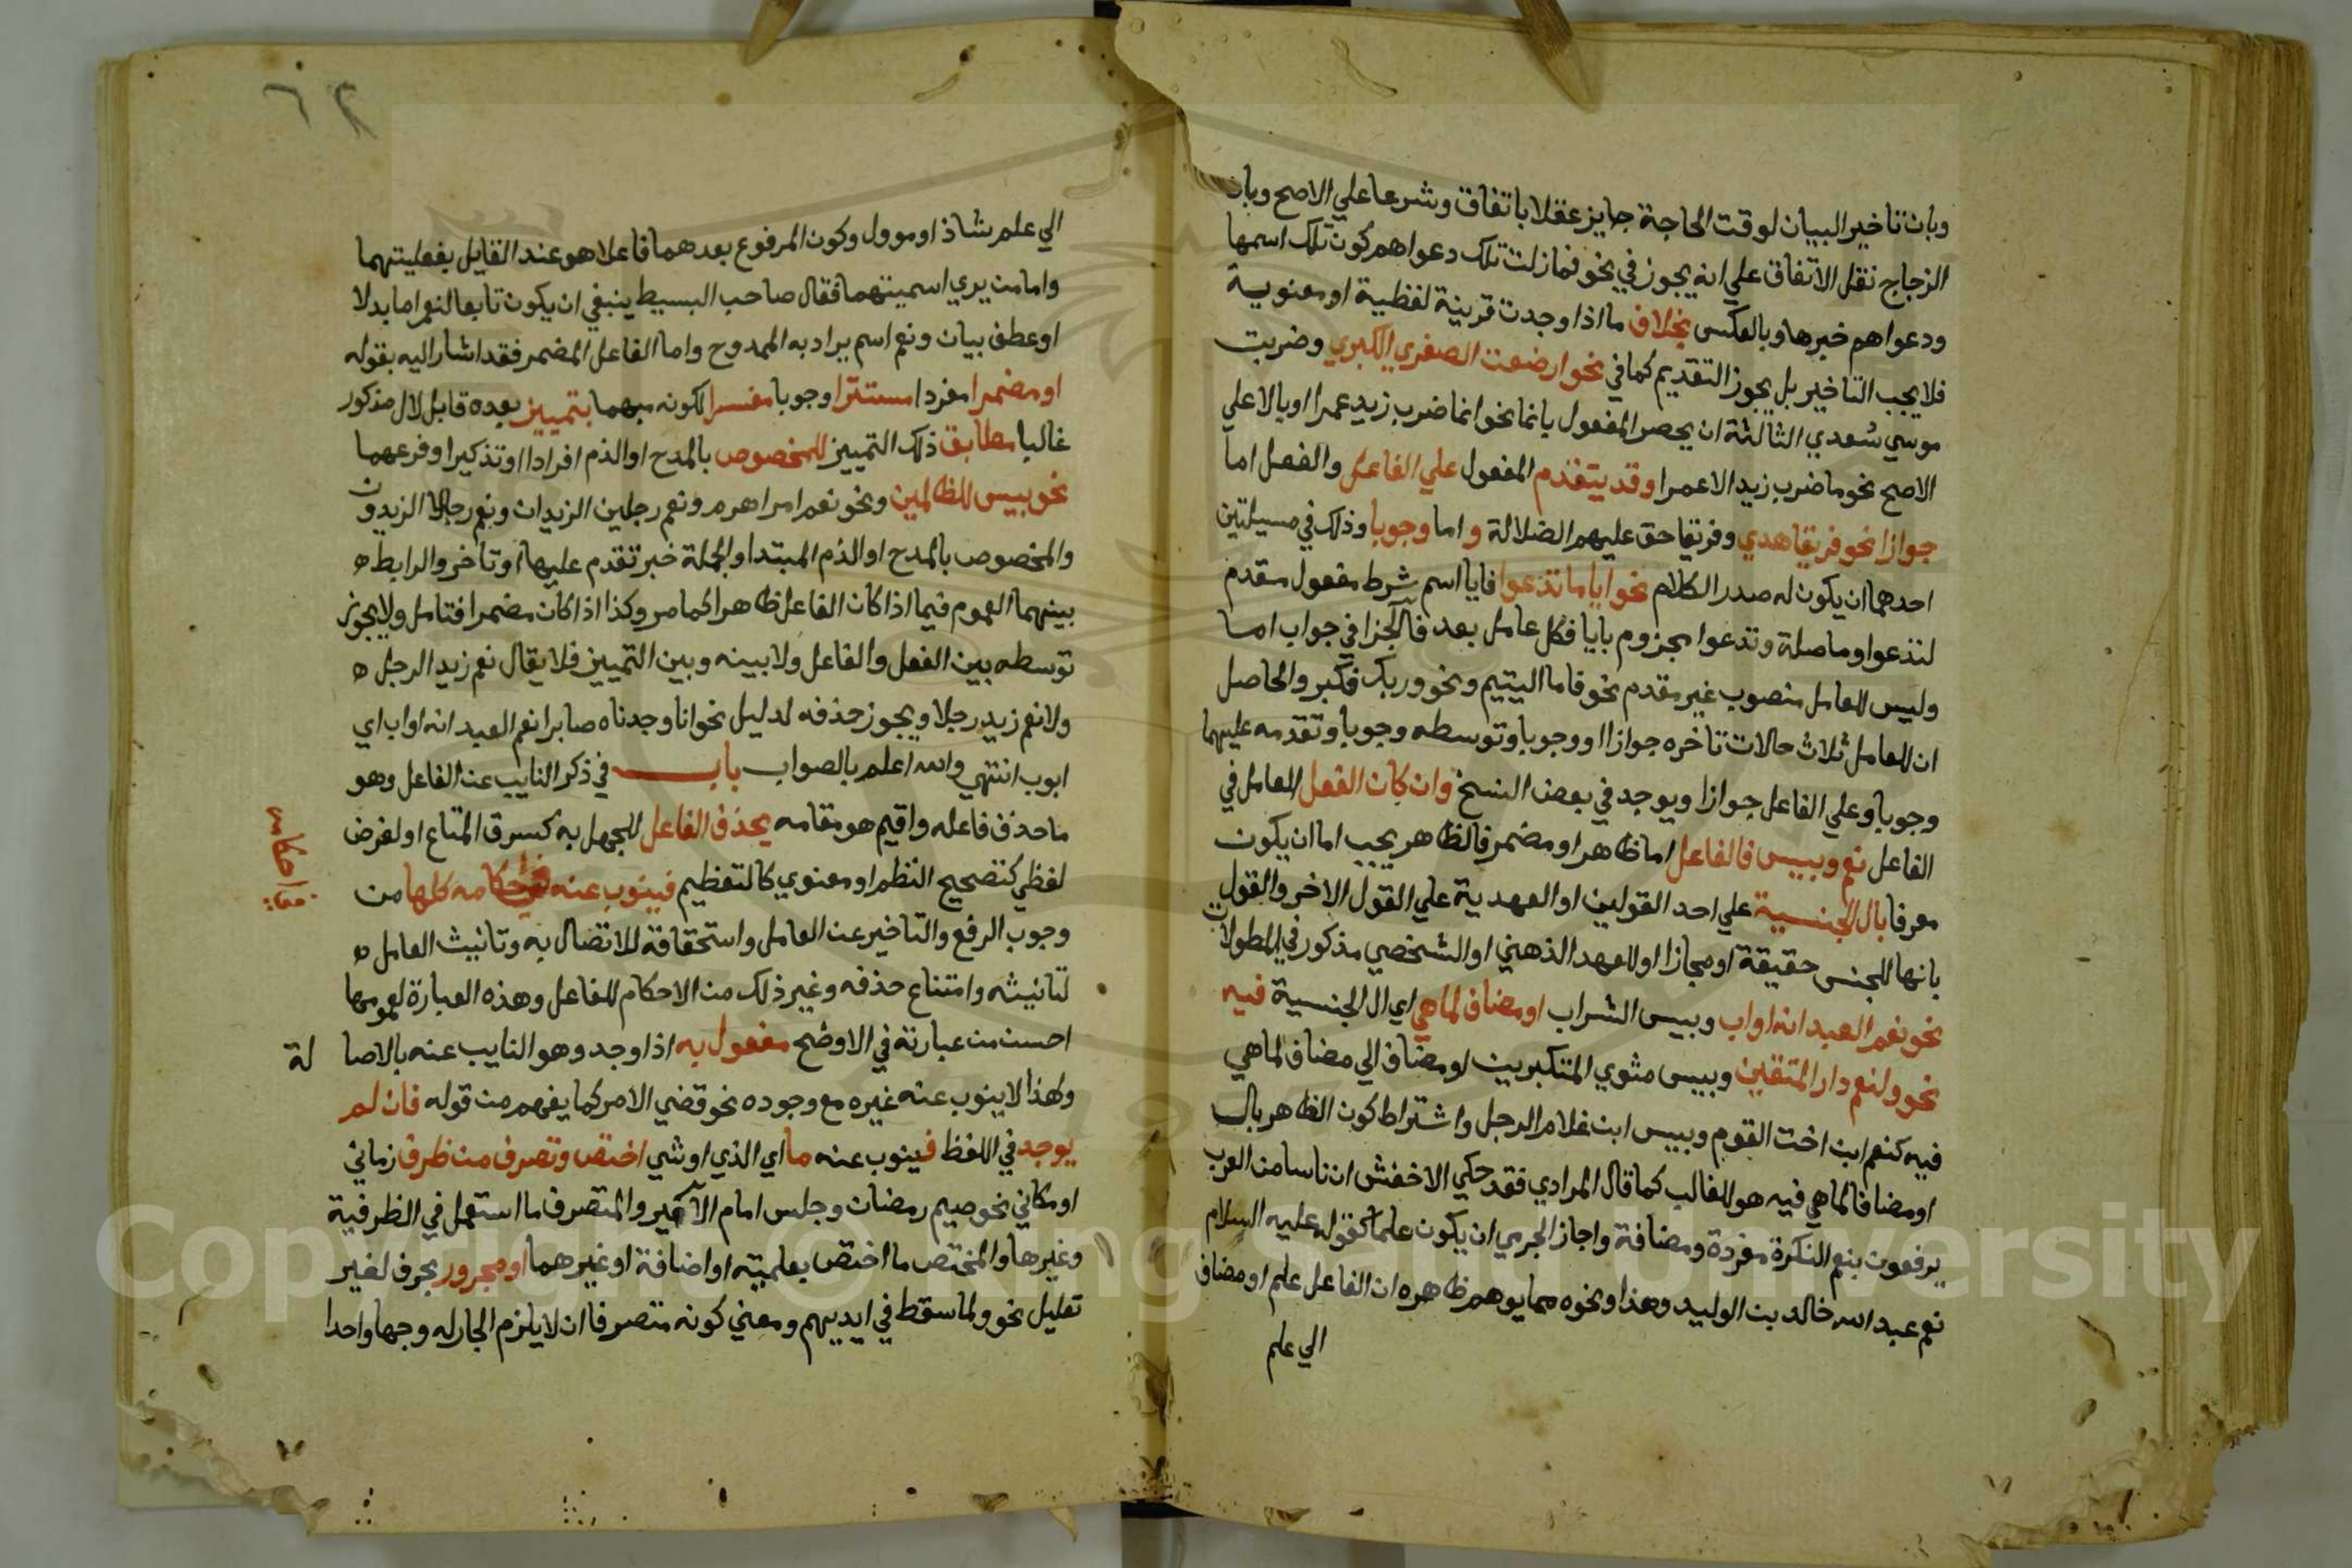 وبان تاخير البيان لوقت الحاجة جايز عقلا باتفاق وشرعا علي الاصح وبان
الزجاج نقل الاتفاق علي انه يجوز في نحو فما زلت تلك دعواهم كون تلك اسمها
ودعواهم خبرها وبالعكس بخلاف ما اذا وجدت قرينة لفظية او معنوية
فلا يجب التاخير بل يجوز التقديم كما في نحو ارضعت الصغري الكبري وضربت
موسي سعدي الثالثة ان يحصر المفعول بانما نحو انما ضرب زيد عمرا او بالا علي
الاصح نحو ما ضرب زيد الا عمرا وقد يتقدم المفعول علي الفاعل والفعل اما
جوازا نحو فريقا هدي وفريقا حق عليهم الضلالة واما وجوبا وذلك في مسيلتين
احدهما ان يكون له صدر الكلام نحو ايا ما تدعوا فايا اسم شرط مفعول مقدم
لتدعوا وما صلة وتدعوا مجزوم بايا فكل عامل بعد فا الجزا في جواب اما
وليس للعامل منصوب غير مقدم نحو فاما اليتيم ونحو وربك فكبر والحاصل
ان للعامل ثلاث حالات تاخره جوازا او وجوبا وتوسطه وجوبا وتقدمه عليهما
وجوبا وعلي الفاعل جوازا ويوجد في بعض النسخ وان كان الفعل العامل في
الفاعل نعم وبيس فالفاعل اما ظاهر او مضمر فالظاهر يجب اما ان يكون
معرفا بال الجنسية علي احد القولين او العهدية علي القول الاخر والقول
بانها للجنس حقيقة او مجازا او للعهد الذهني او الشخصي مذكور في المطولات
نحو نعم العبد انه اواب وبيس الشراب او مضاف لما هي اي ال الجنسية فيه
نحو ولنعم دار المتقين وبيس مثوي المتكبرين او مضاف الي مضاف لما هي
فيه كنعم ابن اخت القوم وبيس ابن غلام الرجل واشتراط كون الظاهر بال
او مضافا لما هي فيه هو للغالب كما قال المرادي فقد حكي الاخفش ان ناسا من العرب
يرفعون بنعم النكرة مفردة ومضافة واجاز الجرمي ان يكون علما كقوله عليه السلام
نعم عبد الله خالد بن الوليد وهذا ونحوه مما يوهم ظاهره ان الفاعل علم او مضاف
الي علم
٦٢
الي علم شاذ او موول وكون المرفوع بعدهما فاعلا هو عند القايل بفعليتهما
واما من يري اسميتهما فقال صاحب البسيط ينبغي ان يكون تابعا لنعم اما بدلا
او عطف بيان ونعم اسم يراد به الممدوح واما الفاعل المضمر فقد اشار اليه بقوله
او مضمرا مفردا مستترا وجوبا مفسرا لكونه مبهما بتمييز بعده قابل لال مذكور
غالبا مطابق ذلك التمييز للمخصوص بالمدح او الذم افرادا او تذكيرا او فرعهما
نحو بيس للظالمين ونحو نعم امرا هرم ونعم رجلين الزيدان ونعم رجالا الزيدون
والمخصوص بالمدح او الذم المبتدا والجملة خبر تقدم عليها او تاخر والرابط ه
بينهما العموم فيما اذا كان الفاعل ظاهرا كما مر وكذا اذا كان مضمرا فتامل ولا يجوز
توسطه بين الفعل والفاعل ولا بينه وبين التمييز فلا يقال نعم زيد الرجل ه
ولا نعم زيد رجلا ويجوز حذفه لدليل نحو انا وجدناه صابرا نعم العبد انه اواب اي
ايوب انتهي والله اعلم بالصواب باب في ذكر النايب عن الفاعل وهو
ما حذف فاعله واقيم هو مقامه يحذف الفاعل للجهل به كسرق المتاع او لغرض
لفظي كتصحيح النظم او معنوي كالتعظيم فينوب عنه في احكامه كلها من
في احكامه
وجوب الرفع والتاخير عن العامل واستحقاقة للاتصال به وتانيث العامل ه
لتانيثه وامتناع حذفه وغير ذلك من الاحكام للفاعل وهذه العبارة لعمومها
احسن من عبارتة في الاوضح مفعول به اذا وجد وهو النايب عنه بالاصا لة
ولهذا لا ينوب عنه غيره مع وجوده نحو قضي الامر كما يفهم من قوله فان لم
يوجد في اللفظ فينوب عنه ما اي الذي او شي اختص وتصرف من ظرف زماني
او مكاني نحو صيم رمضان وجلس امام الامير والمتصرف ما استعمل في الظرفية
وغيرها والمختص ما اختص بعلمية او اضافة او غيرهما او مجرور بحرف لغير
تعليل نحو ولما سقط في ايديهم ومعني كونه متصرفا ان لا يلزم الجار له وجها واحدا
Copyright © King Saud University